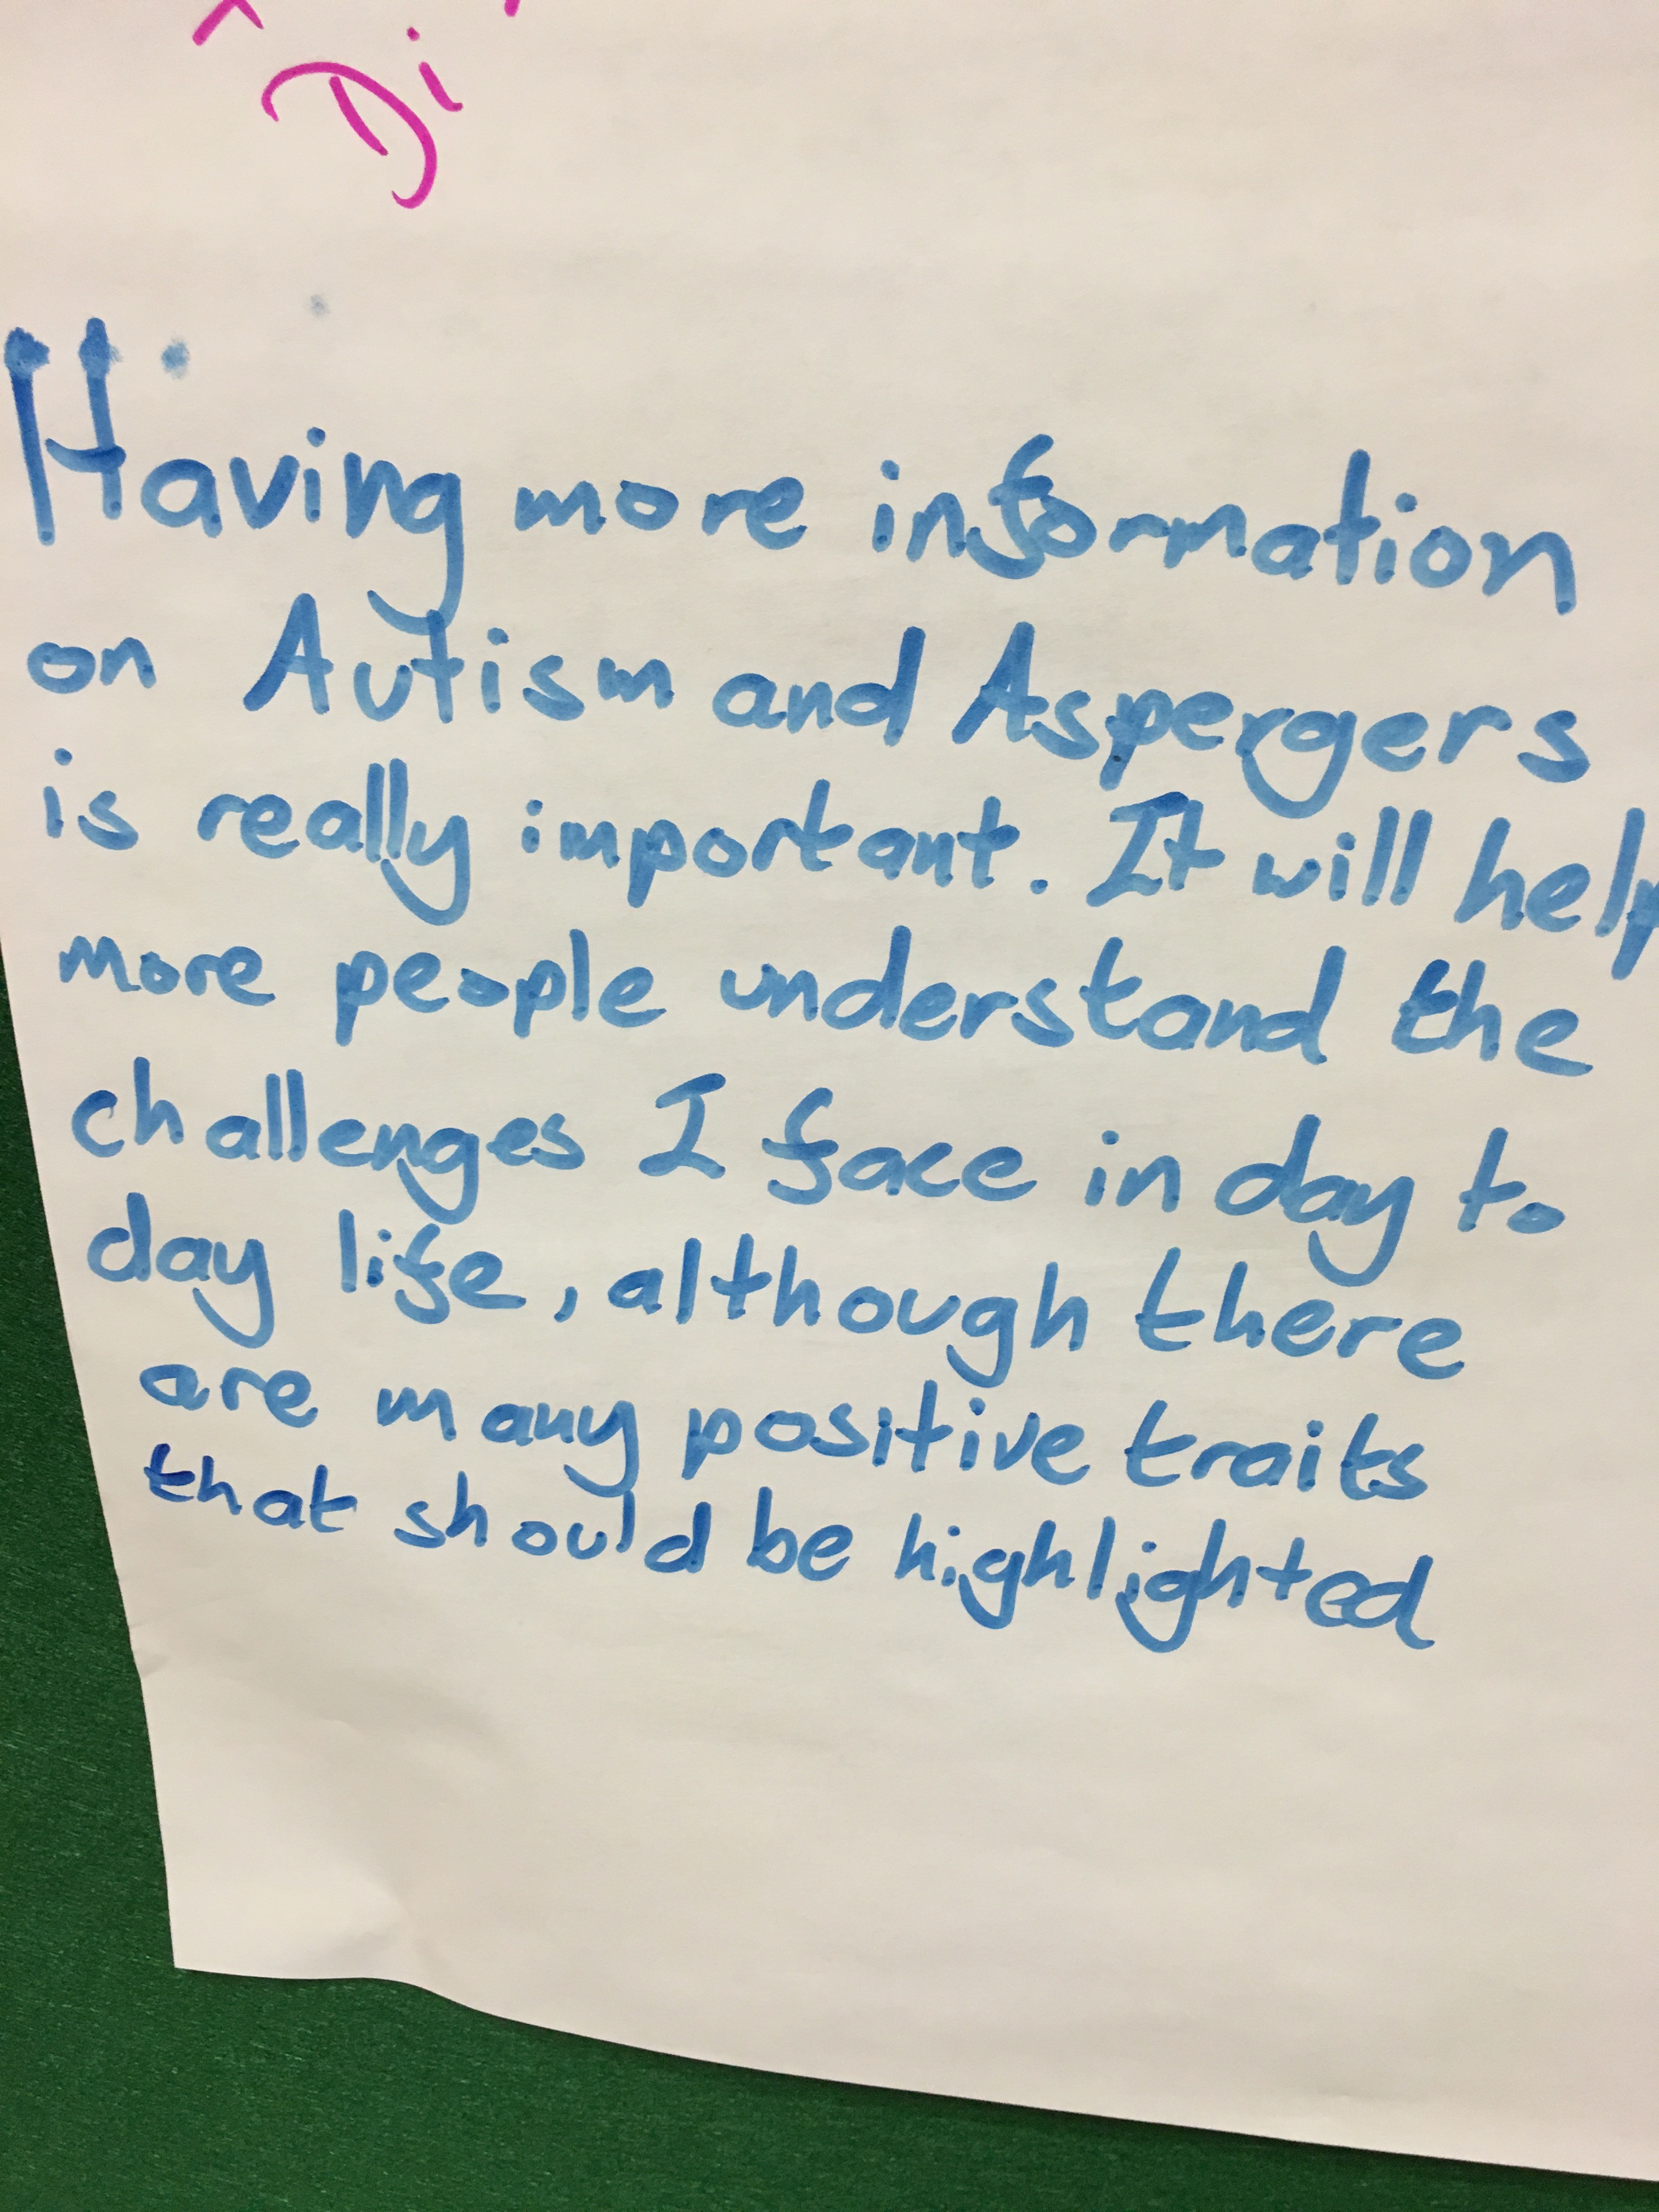 Di
Having more information
on Autism and Aspergers
is really important. It will help
more people understand the
challenges I face in day to
day life, although there
are many positive traits
that should be highlighted